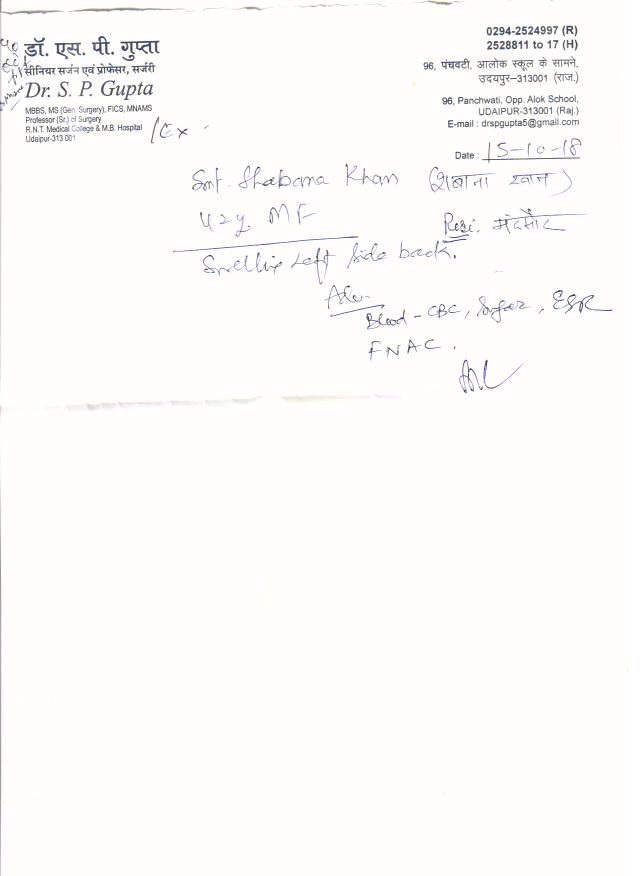 डॉ. एस. पी. गुप्ता
सीनियर सर्जन एवं प्रोफेसर, सर्जरी
Dr. S. P. Gupta
MBBS, MS (Gen. Surgery), FICS, MNAMS
Professor (Sr.) of Surgery
R.N.T. Medical College & M.B. Hospital
Udaipur-313 001
Ex
0294-2524997 (R)
2528811 to 17 (H)
96, पंचवटी, आलोक स्कूल के सामने,
उदयपुर–313001 (राज.)
96, Panchwati, Opp. Alok School,
UDAIPUR-313001 (Raj.)
E-mail : drspgupta5@gmail.com
Date : 15-10-18
Smt. Shabana Khan (शबाना खान)
42y MF
Resi.
Swelling Left side back.
Adv
Blood - CBC, Sugar, ESR
FNAC.